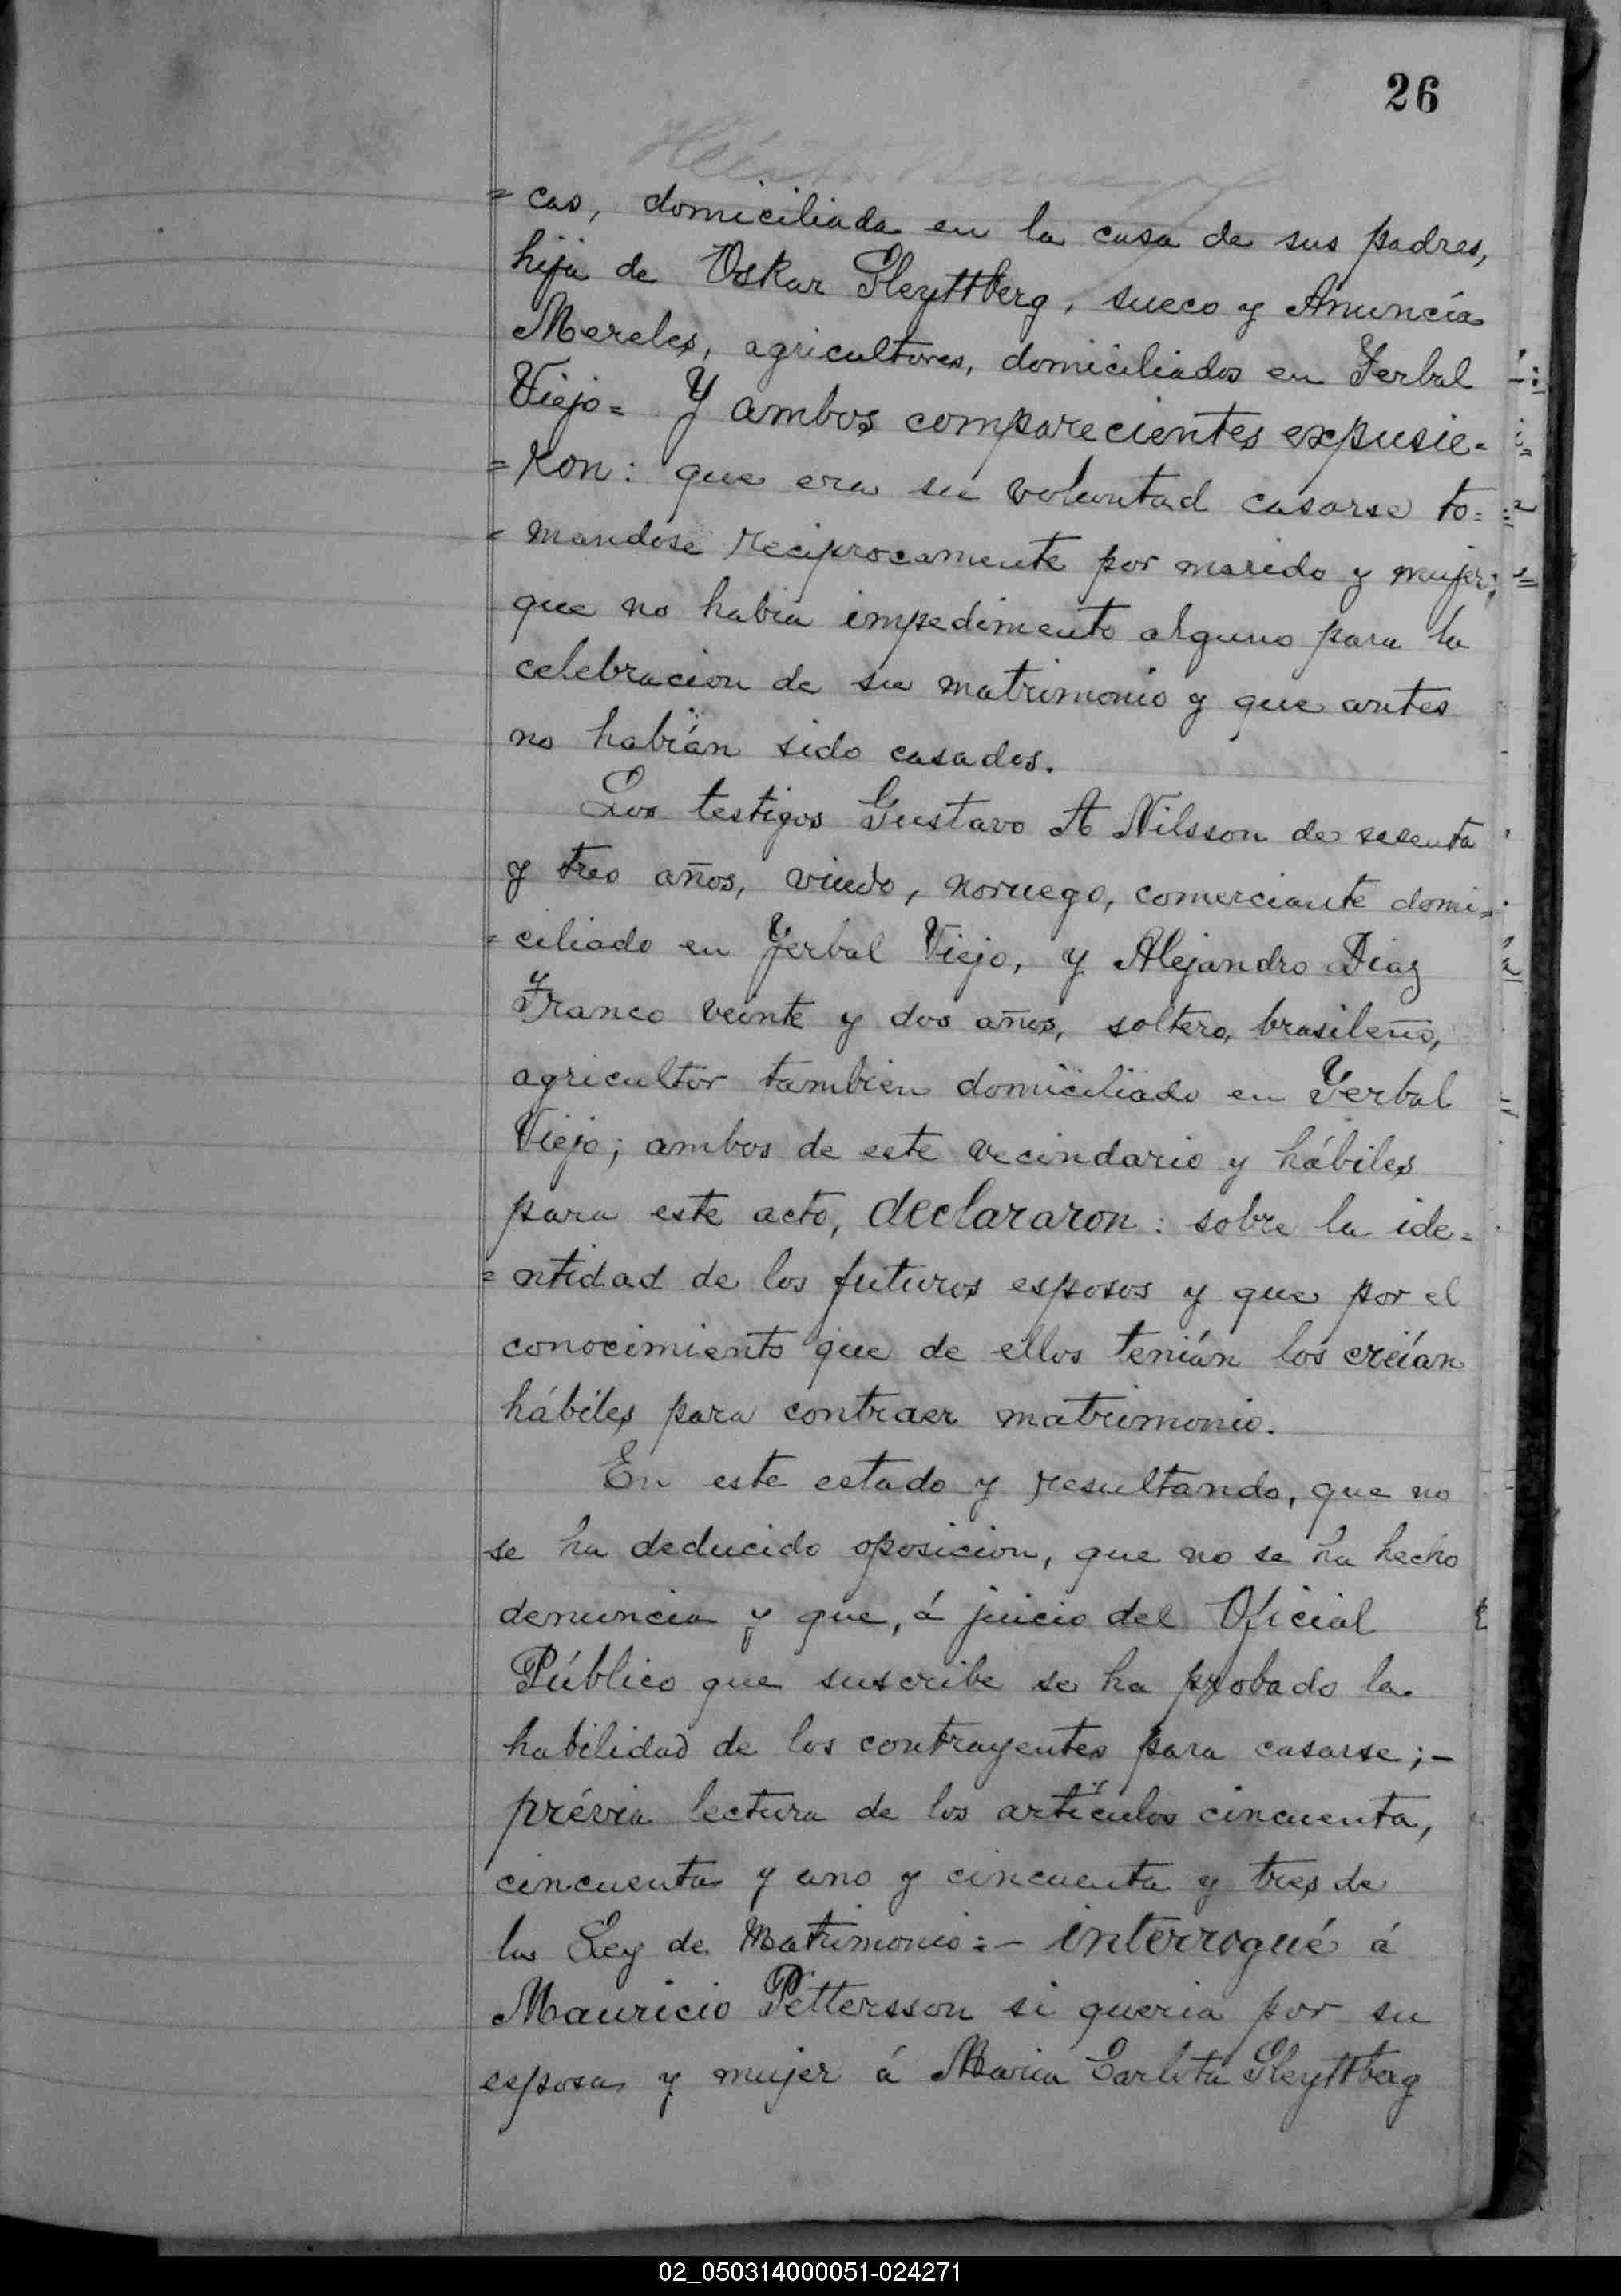 26
= cas, domiciliada en la casa de sus padres,
hija de Oskar Gleyttberg, sueco y Anuncía
Mereles, agricultores, domiciliados en Yerbal
Viejo = Y ambos comparecientes expusie=
= ron: que era su voluntad casarse to=
= mandose reciprocamente por marido y mujer;
que no habia impedimento alguno para la
celebracion de su matrimonio y que antes
no habián sido casados.
Los testigos Gustavo A Nilsson de sesenta
y tres años, viudo, noruego, comerciante domi=
= ciliado en Yerbal Viejo, y Alejandro Diaz
Franco veinte y dos años, soltero, brasileño,
agricultor tambien domiciliado en Yerbal
Viejo; ambos de este vecindario y hábiles
para este acto, declararon: sobre la ide=
= ntidad de los futuros esposos y que por el
conocimiento que de ellos tenián los creían
hábiles para contraer matrimonio.
En este estado y resultando, que no
se ha deducido oposicion, que no se ha hecho
denuncia y que, á juicio del Oficial
Público que suscribe se ha probado la
habilidad de los contrayentes para casarse; -
prévia lectura de los artículos cincuenta,
cincuenta y uno y cincuenta y tres de
la Ley de Matrimonio: - interrogué á
Mauricio Pettersson si queria por su
esposa y mujer á Maria Carlita Gleyttberg
02_050314000051-024271